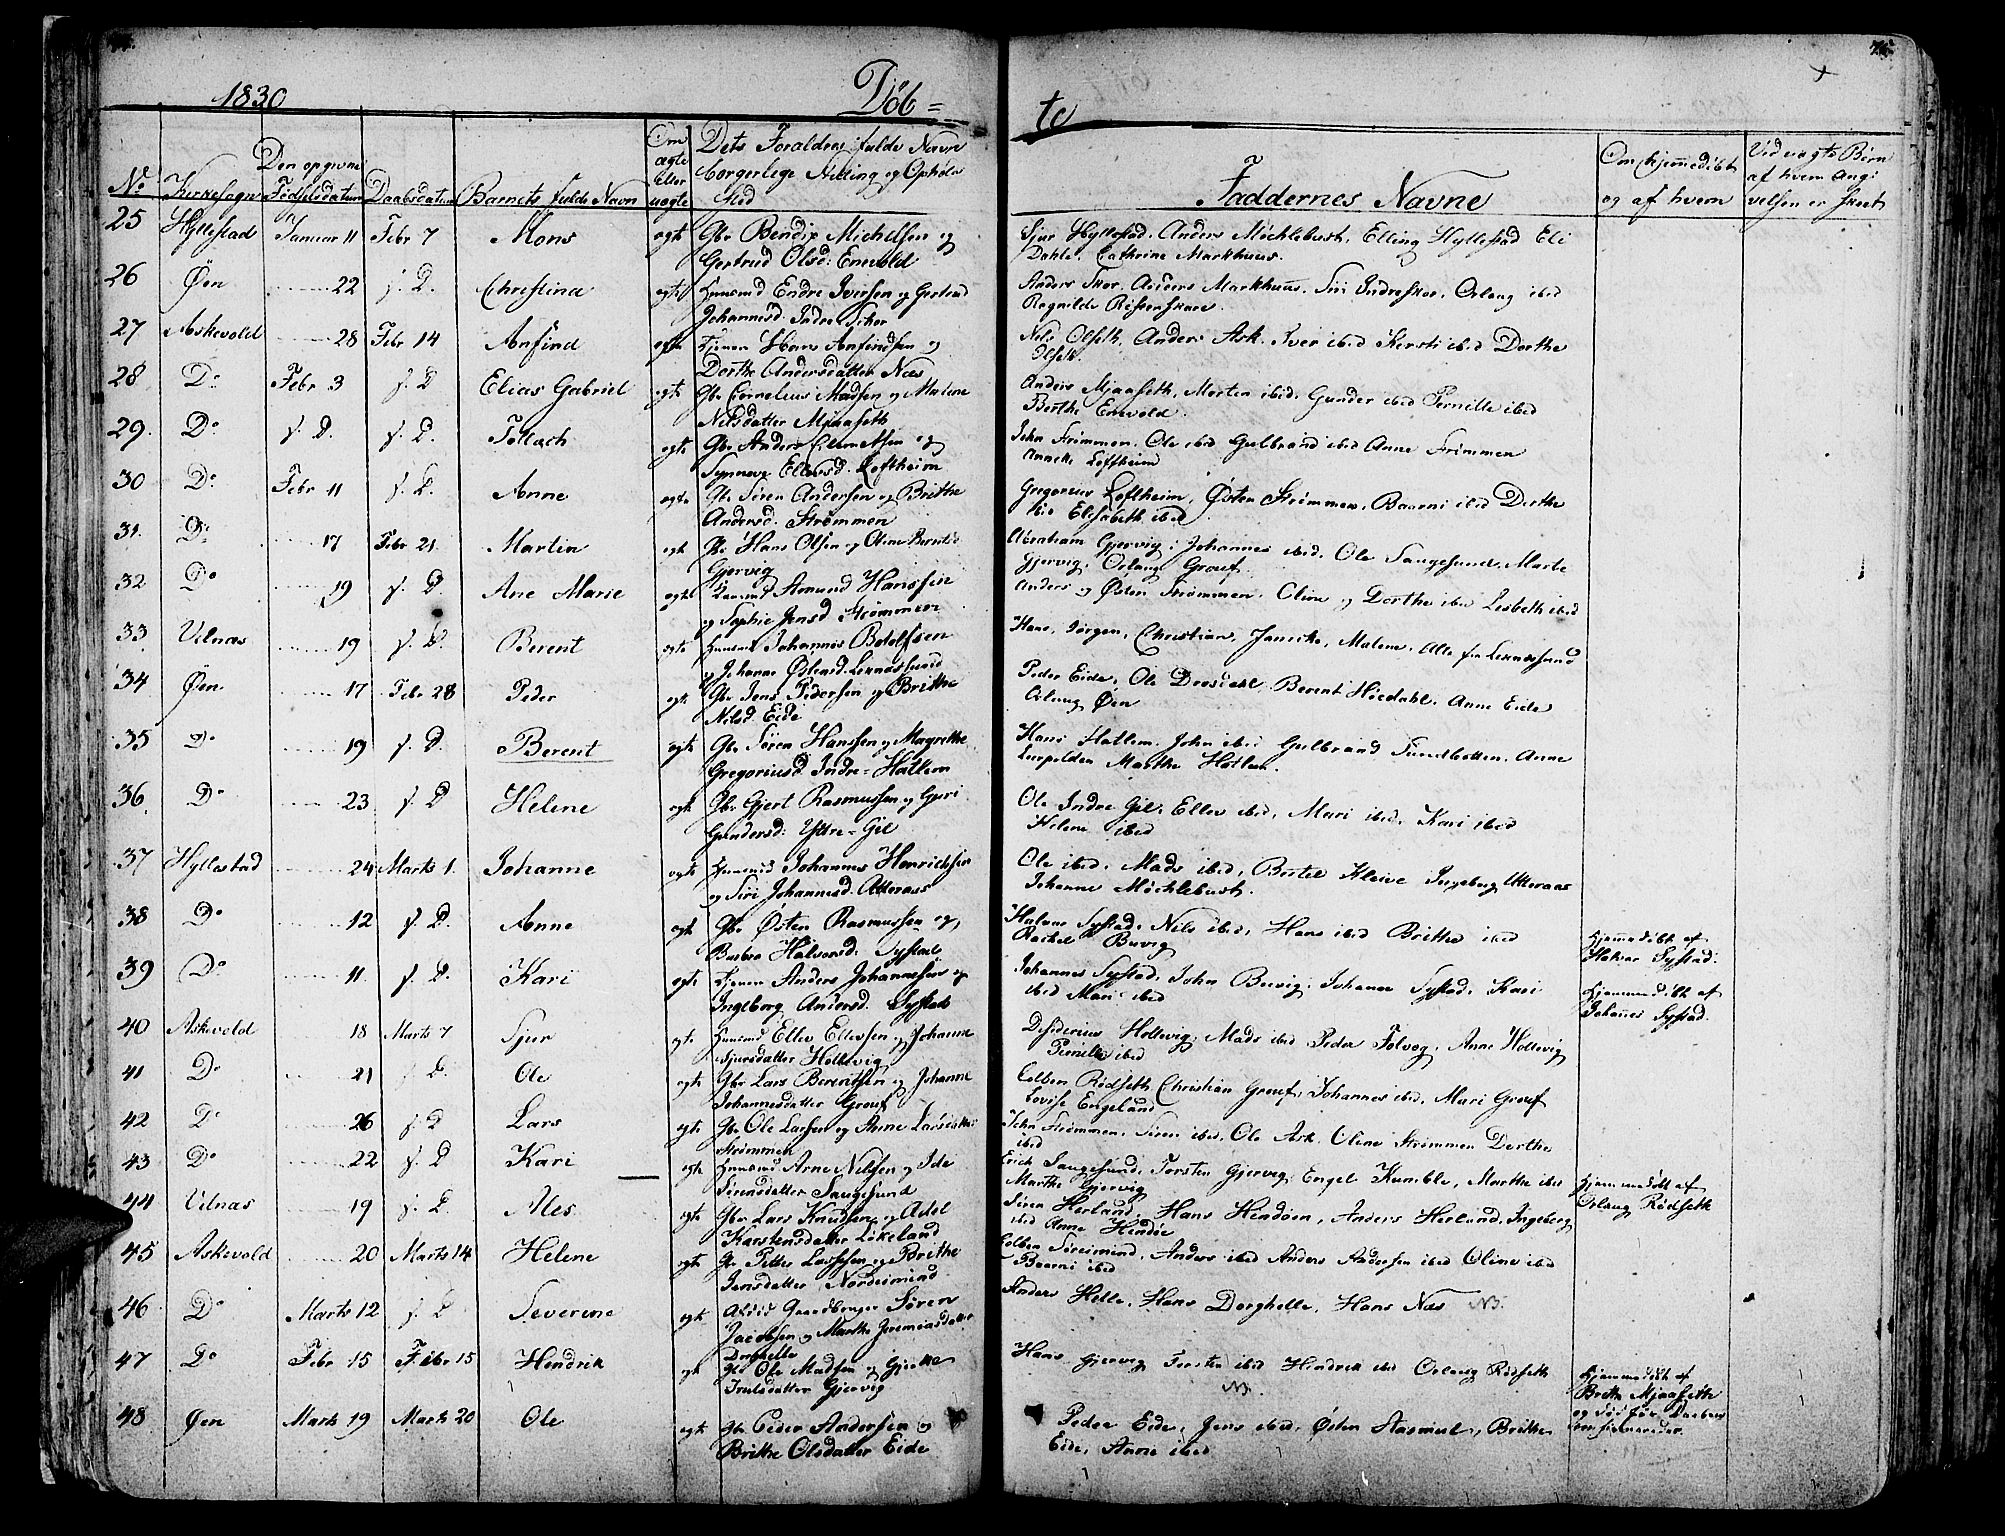 75
1830
Døb= te
No
Kirkesogn
Den opgivne
Fødselsdatum
Daabsdatum
Barnets fulde Navn
Om
ægte
eller
uægte
Dets Foraldres fulde Navn
borgerlige Stilling og Opholds
sted
Faddernes Navne
Om hjemmedøbt
og af hvem
Ved uægte Børn
af hvem Angi
velsen er skeet
25 Hyllestad Januar 11 Febr 7 Mons ægte Gbr Bendix Michelsen og
Gertrud Olsd: Enevold
Sjur Hyllestad, Anders Møchlebust, Elling Hyllestad Eli
Dahle, Cathrine Markhuus.
26 Øen 22 s. D. Christina ægte Huusmd Endre Iversen og Gertrud
Johannesd. Indre
Anders Skor, Anders Markhuus, Siri Indreskor, Orloug ibid
Ragnilde
27 Askevold 28 Febr 14 Anfind ægte Hans Anfindsen og
Dorthe Andersdatter Næs
Nils Olseth, Anders Ask, Iver ibid Kersti ibid Dorthe
Olseth
28 Do Febr 3 s. D Elias Gabriel ægte Gbr Cornelius Madsen og Malene
Nilsdatter Mjaaseth
Anders Mjaaseth, Morten ibid, Gunder ibid Pernille ibid
Berthe Enevold.
29 Do s. D. s. D. Tollach ægte Gbr Anders Clemetsen og
Synneve Ellevsd. Loftheim
John Strømmen, Ole ibid Gulbrand ibid Anne Strømmen
Anneke Loftheim
30 Do Febr 11 s. D. Anne ægte Gbr Søren Andersen og Brithe
Andersd. Strømmen
Gregorius Loftheim, Østen Strømmen, Baarni ibid Dorthe
ibid Elisabeth ibid
31 Do 17 Febr 21 Martin ægte Gbr Hans Olsen og Oline Berntsd
Gjervig
Abraham Gjervig, Johannes ibid, Ole Sangesund, Marte
Gjervig, Orloug Grouf
32 Do 19 s. D Ane Marie ægte Huusmd Amund Hanssen
og Sophie Jensd Strømmen
Anders og Østen Strømmen, Oline og Dorthe ibid Lisbeth ibid
33 Vilnæs 19 s. D. Berent ægte Huusmd Johannes Botolfsen
og Johanne Østensd. Leknæssund
Hans, Jørgen, Christian, Janicke, Malene, Alle fra Leknæssund
34 Øen 17 Febr 28 Peder ægte Gbr Jens Pedersen og Brithe
Nilsd. Eide
Peder Eide, Ole Drøsdahl, Berent Høedahl, Anne Eide
Orloug Øen
35 Do 19 s. D. Berent ægte Gbr Søren Hanssen og Magrethe
Gregoriusd. Indre=Hatlem
Hans Hatlem, John ibid Gulbrand Sundbotten, Anne
Marthe Hatlem.
36 Do 23 s. D Helene ægte Gbr Gjert Rasmussen og Guri
Gundersd: Yttre=Gil
Ole Indre Gil, Ellev ibid, Mari ibid, Kari ibid
Helene ibid
37 Hyllestad 24 Marts 1. Johanne ægte Huusmd Johannes Henrichsen
og Siri Johannesd. Atteraas
Ole ibid, Mads ibid, Bertel Kleive Ingeborg Atteraas
Johanne Møchlebust.
38 Do 12 s. D. Anne ægte Gbr Østen Rasmussen og
Barbro Halvorsd. Systad
Halvor Systad, Nils ibid, Hans ibid Brithe ibid
Rachel Buvig
Hjemmedøbt af
Halvor Systad.
39 Do 11. s. D. Kari ægte Anders Johannessen og
Ingeborg Andersd. Systad
Johannes Systad, John Buvig, Johanne Systad, Kari
ibid Mari ibid
Hjemmedøbt af
Johannes Systad.
40 Askevold 18 Marts 7 Sjur ægte Huusmd Ellev Ellevsen og Johanne
Sjursdatter Hollevig
Desiderius Hollevig, Mads ibid Peder Folvog, Anne Hollevig
Pernille ibid
41 Do 21 s. D. Ole ægte Gbr Lars Berentsen og Johanne
Johannesdatter Grouf
Colben Rødseth, Christian Grouf, Johannes ibid, Mari Grouf
Lovise Engeland
42 Do 26 s. D Lars ægte Gbr Ole Larsen og Anne
Strømmen
John Strømmen, Søren ibid, Ole Ask, Oline Strømmen Dorthe
ibid
43 Do 22 s. D Kari ægte Huusmd Arne Nilssen og Ide
Sørensdatter Sangesund
Erich Sangesund, Torsten Gjervig, Engel Kumble, Marthe ibid
Marthe Gjervig
Hjemmedøbt af
Orloug Rødseth
44 Vilnæs 19 s. D. Ales ægte Gbr Lars Knudsen og Adel
Karstensdatter Løkeland
Søren Herland, Hans Hendøen, Anders Herland, Ingeborg
ibid Anne Hendøe
45 Askevold 20 Marts 14 Helene ægte Gbr Petter Larssen og Brithe
Jensdatter Nordeimind
Colben Søreimind, Anders ibid Anders Andersen ibid Oline ibid
Baarni ibid
46 Do Marts 12 s. D Severine ægte Gaardbruger Søren
Jacobsen og Marthe Jeremiasdatter
Dorghelle
Anders Helle, Hans Dorghelle, Hans Næs NB.
47 Do Febr 15 Febr 15 Hendrik ægte Gbr Ole Madsen og Gjertrue
Trulsdatter Gjervig
Hans Gjervig Torsten ibid Hendrik ibid Orloug Rødseth
NB.
Hjemmedøbt af
Brithe Mjaaseth
og død før Daabens
48 Øen Marts 19 Marts 20 Ole ægte Gbr Peder Andersen og
Brithe Olsdatter Eide
Peder Eide, Jens ibid, Østen Aasmul, Brithe
Eide, Anne ibid